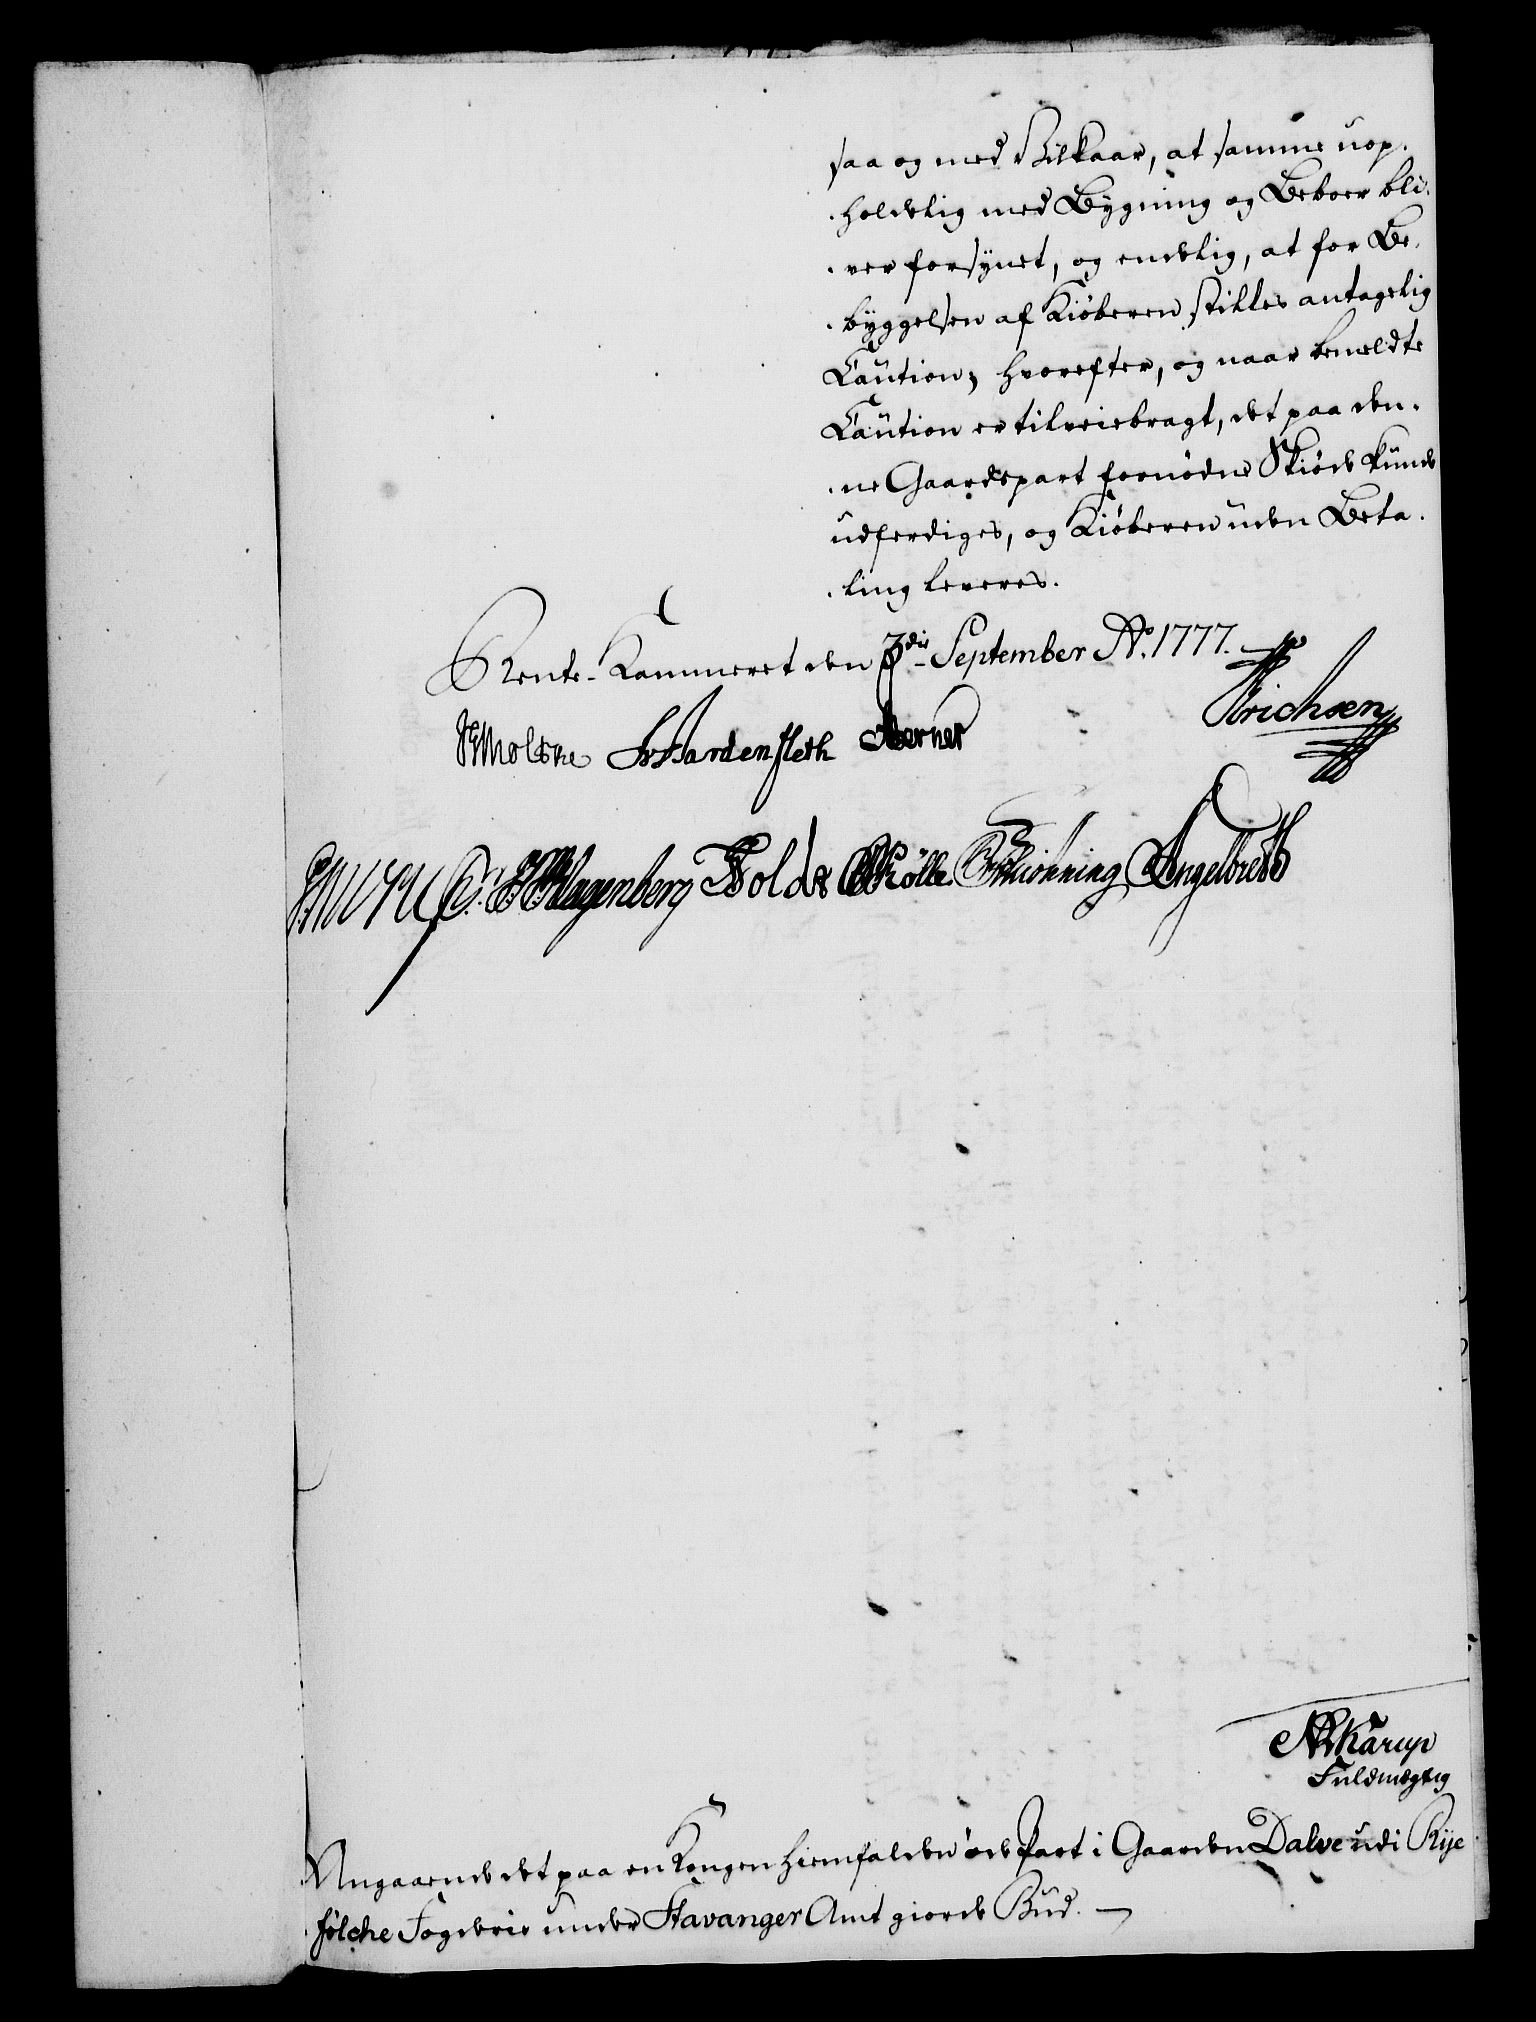 saa og med Vilkaar, at samme uop-
-holdelig med Bygning og Beboer bli-
-ver forsynet, og endelig, at for Be-
-byggelsen af Kiøberen stilles antagelig
Caution; hvorefter, og naar bemeldte
Caution er tilveiebragt, det paa den-
-ne Gaardspart fornødne Skiøde kunde
udferdiges, og Kiøberen uden Beta-
-ling leveres.
Rente-Kammeret den 3die September Ao. 1777.
Moltke Hardenfleth Berner Erichsen
Klagenberg Told Rølle Schiønning Engelbreth
Karup
Fuldmægtig
Angaaende det paa en Kongen hiemfalden øde Part i Gaarden Dalve udi Rye
følche Fogderie under Stavanger Amt giorde Bud.